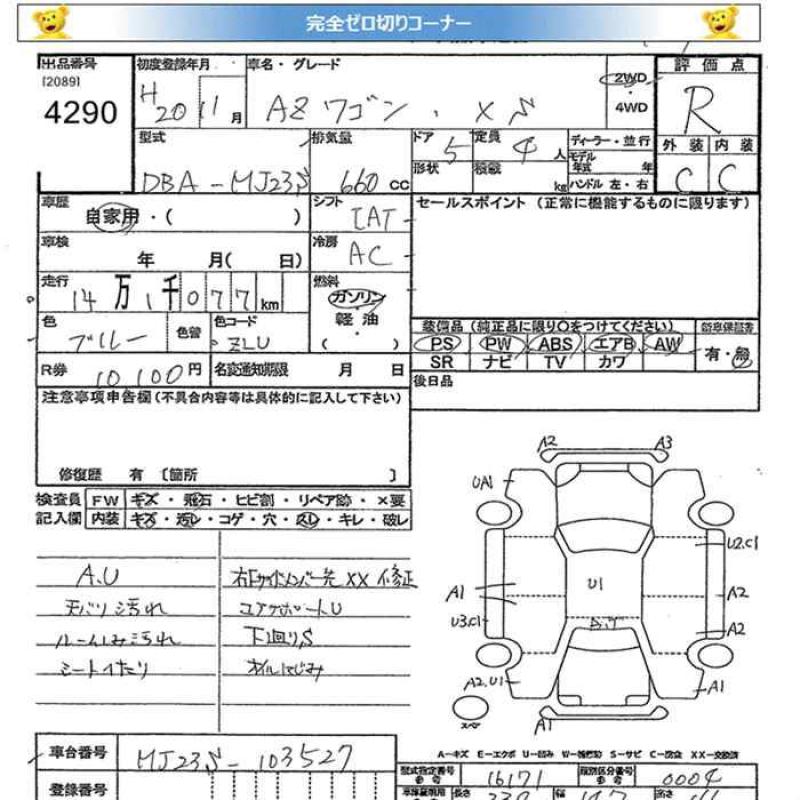 完全ゼロ切りコーナー
出品番号
[2089]
4290
初度登録年月
H 20 11 月
車名・グレード
AZ ワゴン . XS
2WD
・
4WD
評価点
R
外装 内装
C C
型式
DBA - MJ23S
排気量
660 cc
ドア 5
形状
定員 4 人
積載 kg
ディーラー・並行
モデル年式 年
ハンドル 左・右
車歴
自家用・( )
シフト
IAT
セールスポイント (正常に機能するものに限ります)
車検
年 月( 日)
冷房
AC
走行
14 万 1 千 0 7 7 km
燃料
ガソリン
・
軽油
( ・ )
色
ブルー
色替
色コード
ZLU
装備品 (純正品に限り○をつけてください)
PS PW ABS エアB AW
SR ナビ TV カワ
新車保証書
有・無
R券 10100 円
名変通知期限 月 日
後日品
注意事項申告欄 (不具合内容等は具体的に記入して下さい)
修復歴 有 [箇所 ]
検査員 FW キズ・飛石・ヒビ割・リペア跡・×要
記入欄 内装 キズ・汚レ・コゲ・穴・スレ・キレ・破レ
A.U
天バリ汚れ
ルームしみ汚れ
シートへたり
右Fサイドメンバー先XX修正
コアサポートU
下廻りS
オイルにじみ
A2 A3
UA1
U2.C1
A1
U1
A2
U3.C1
A2
A2.U1
A1
スペア
A1
A-キズ E-エクボ U-凹み W-補修跡 S-サビ C-腐食 XX-交換済
車台番号 MJ23S-103527
型式指定番号 16171
類別区分番号 0004
登録番号
長さ 339
幅 147
高さ